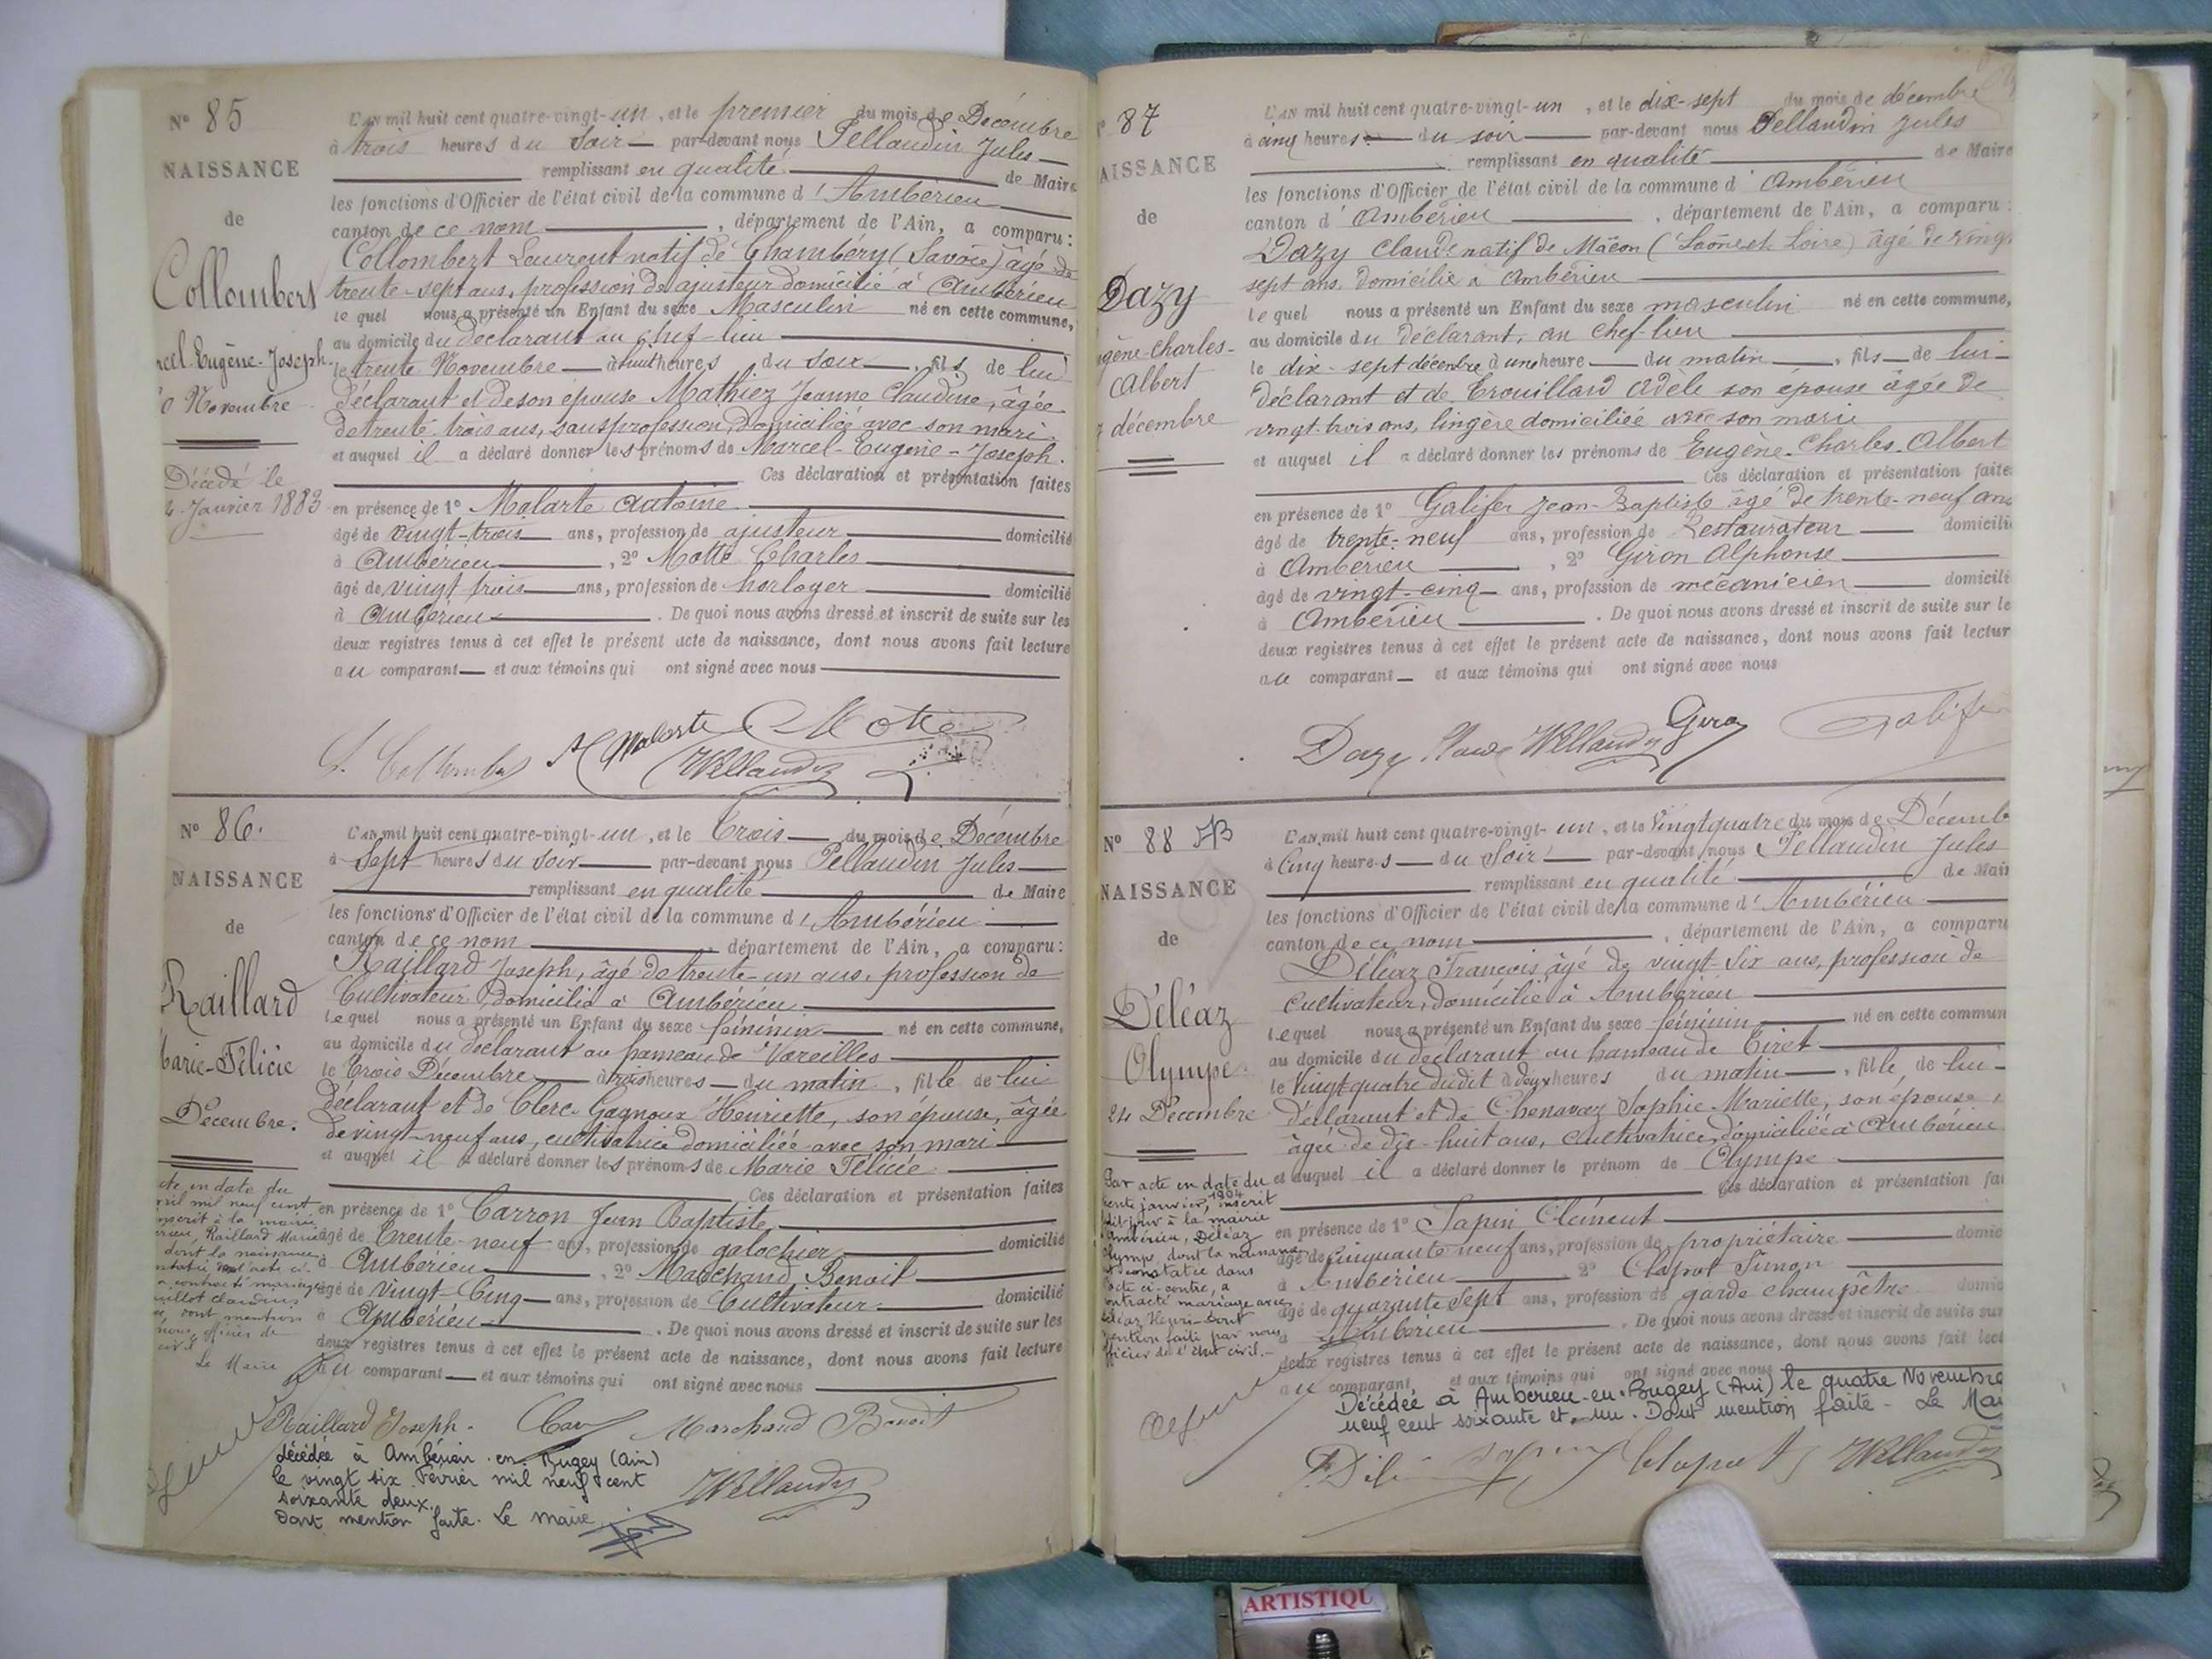 N° 85
NAISSANCE
de
Collombert
Eugène-Joseph
Novembre
Décédé le
Janvier 1883
L'AN mil huit cent quatre-vingt-un, et le premier du mois de Décembre
à trois heures du Soir par-devant nous Pellaudin Jules
remplissant en qualité de Maire
les fonctions d'Officier de l'état civil de la commune d'Ambérieu
canton de ce nom, département de l'Ain, a comparu :
Collombert Laurent natif de Chambéry (Savoie) âgé de
trente-sept ans, profession de ajusteur domicilié à Ambérieu
lequel nous a présenté un Enfant du sexe Masculin né en cette commune,
au domicile du déclarant au chef-lieu
le trente Novembre à huit heures du soir, fils de lui
déclarant et de son épouse Mathiez Jeanne Claudine, âgée
de trente trois ans, sans profession, domiciliée avec son mari
et auquel il a déclaré donner les prénoms de Marcel-Eugène-Joseph.
Ces déclaration et présentation faites
en présence de 1° Malarte Antoine
âgé de vingt-trois ans, profession de ajusteur domicilié
à Ambérieu, 2° Motte Charles
âgé de vingt trois ans, profession de horloger domicilié
à Ambérieu. De quoi nous avons dressé et inscrit de suite sur les
deux registres tenus à cet effet le présent acte de naissance, dont nous avons fait lecture
au comparant et aux témoins qui ont signé avec nous
N° 86.
NAISSANCE
de
Raillard
Marie-Félicie
Décembre.
L'AN mil huit cent quatre-vingt-un, et le Trois du mois de Décembre
à Sept heures du Soir par-devant nous Pellaudin Jules
remplissant en qualité de Maire
les fonctions d'Officier de l'état civil de la commune d'Ambérieu
canton de ce nom, département de l'Ain, a comparu :
Raillard Joseph, âgé de trente-un ans, profession de
Cultivateur domicilié à Ambérieu
lequel nous a présenté un Enfant du sexe féminin né en cette commune,
au domicile du déclarant au hameau de Vareilles
le Trois Décembre à trois heures du matin, fille de lui
déclarant et de Clerc Gagnoux Henriette, son épouse, âgée
de vingt-neuf ans, cultivatrice domiciliée avec son mari
et auquel il a déclaré donner les prénoms de Marie Félicie
Ces déclaration et présentation faites
en présence de 1° Carron Jean Baptiste
âgé de Trente-neuf ans, profession de galochier domicilié
à Ambérieu, 2° Marchand Benoit
âgé de vingt-Cinq ans, profession de Cultivateur domicilié
à Ambérieu. De quoi nous avons dressé et inscrit de suite sur les
deux registres tenus à cet effet le présent acte de naissance, dont nous avons fait lecture
au comparant et aux témoins qui ont signé avec nous
Raillard Joseph Marchand Benoit
décédée à Ambérieu en Bugey (Ain)
le vingt six Février mil neuf cent
soixante deux.
Dont mention faite. Le maire
87
AISSANCE
de
Dazy
gène-Charles-
Albert
décembre
L'AN mil huit cent quatre-vingt-un, et le dix-sept du mois de décembre
à cinq heures du soir par-devant nous Pellaudin Jules
remplissant en qualité de Maire
les fonctions d'Officier de l'état civil de la commune d'Ambérieu
canton d'Ambérieu, département de l'Ain, a comparu :
Dazy Claude natif de Mâcon (Saône et Loire) âgé de vingt
sept ans, domicilié à Ambérieu
lequel nous a présenté un Enfant du sexe masculin né en cette commune,
au domicile du déclarant, au chef-lieu
le dix-sept décembre à une heure du matin, fils de lui
déclarant et de Trouillard Adèle son épouse âgée de
vingt-trois ans, lingère domiciliée avec son mari
et auquel il a déclaré donner les prénoms de Eugène-Charles-Albert
Ces déclaration et présentation faite
en présence de 1° Galifer Jean-Baptiste âgé de trente-neuf ans
âgé de trente-neuf ans, profession de Restaurateur domicili
à Ambérieu, 2° Giron Alphonse
âgé de vingt-cinq ans, profession de mécanicien domicili
à Ambérieu. De quoi nous avons dressé et inscrit de suite sur le
deux registres tenus à cet effet le présent acte de naissance, dont nous avons fait lectur
au comparant et aux témoins qui ont signé avec nous
N° 88
NAISSANCE
de
Déléaz
Olympe
24 Décembre
Par acte en date du
trente janvier 1904, inscrit
à la mairie
Ambérieu, Déléaz
Olympe dont la naissance
constatée dans
acte ci-contre, a
contracté mariage avec
Déléaz Henri - Dont
mention faite par nous
officier de l'état civil.
L'AN mil huit cent quatre-vingt-un, et le Vingt quatre du mois de Décemb
à Cinq heures du Soir par-devant nous Pellaudin Jules
remplissant en qualité de Mair
les fonctions d'Officier de l'état civil de la commune d'Ambérieu
canton de ce nom, département de l'Ain, a comparu
Déléaz François âgé de vingt-Six ans, profession de
cultivateur, domicilié à Ambérieu
lequel nous a présenté un Enfant du sexe féminin né en cette commun
au domicile du déclarant au hameau de Tiret
le Vingt quatre dudit à deux heures du matin, fille de lui
déclarant et de Chenavaz Sophie-Mariette, son épouse,
âgée de dix-huit ans, cultivatrice, domiciliée à Ambérieu
et auquel il a déclaré donner le prénom de Olympe
Ces déclaration et présentation fai
en présence de 1° Sapin Clément
âgé de Cinquante neuf ans, profession de propriétaire domic
à Ambérieu 2° Clapot Simon
âgé de quarante Sept ans, profession de garde champêtre domic
à Ambérieu. De quoi nous avons dressé et inscrit de suite sur
deux registres tenus à cet effet le présent acte de naissance, dont nous avons fait lect
au comparant et aux témoins qui ont signé avec nous
Décédée à Ambérieu-en-Bugey (Ain) le quatre Novembre
neuf cent soixante et un. Dont mention faite - Le Mai
ARTISTIQU